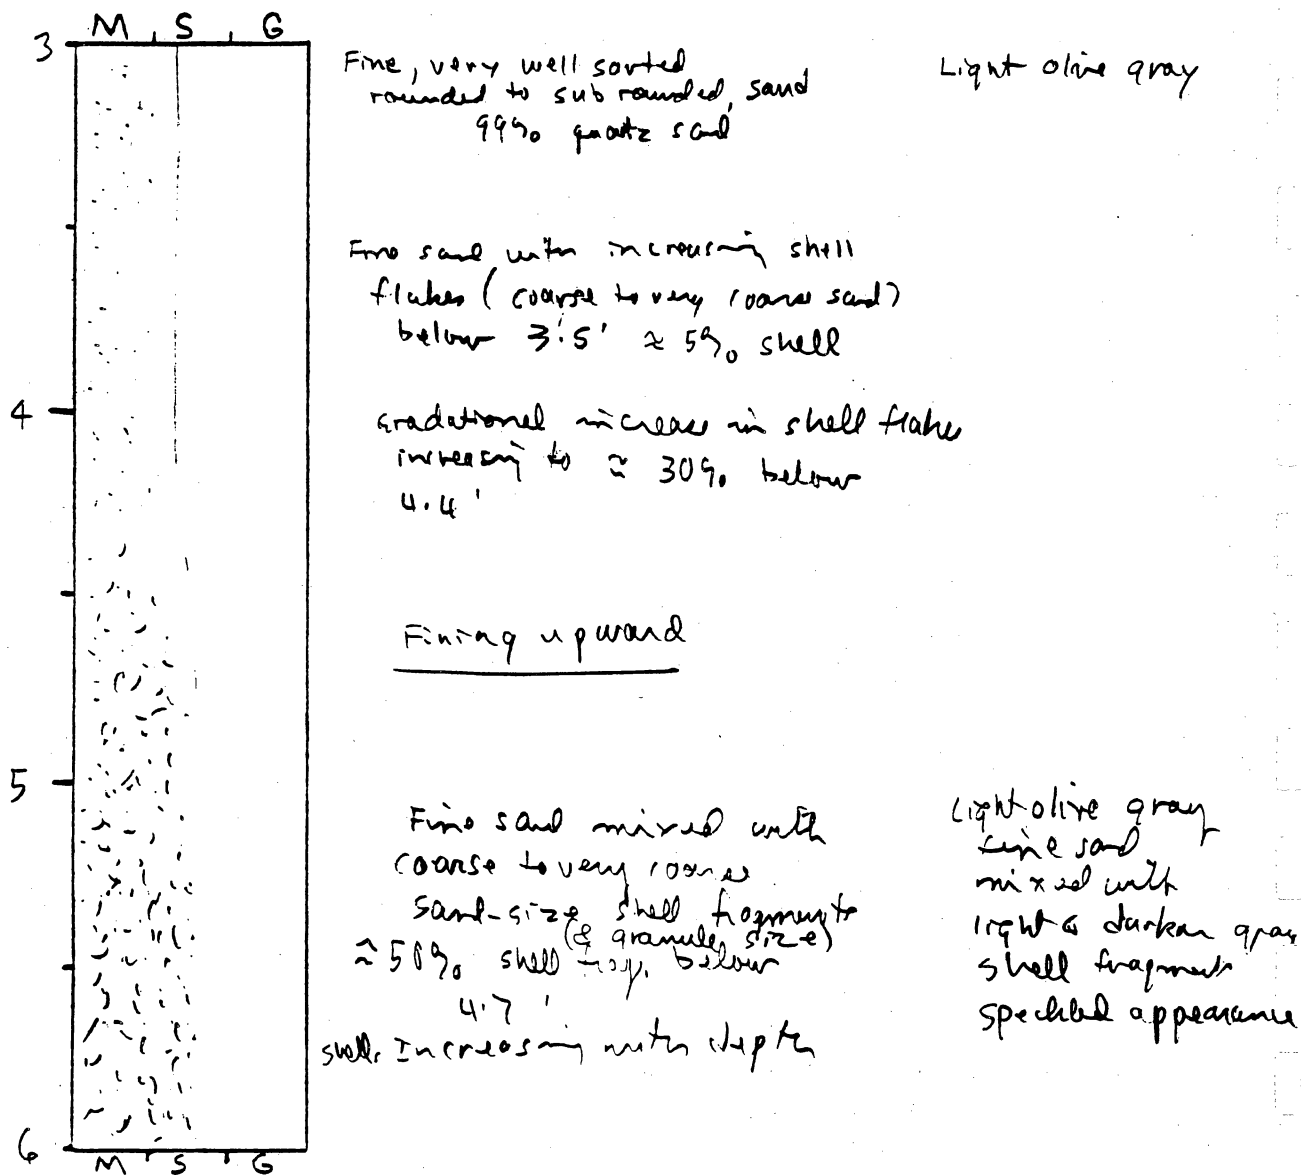 M S G
3
Fine, very well sorted
rounded to subrounded, sand
99% quartz sand
Light olive gray
Fine sand with increasing shell
flakes (coarse to very coarse sand)
below 3.5' ≈ 5% shell
4
gradational increase in shell flakes
increasing to ≈ 30% below
4.4'
Fining upward
5
Fine sand mixed with
coarse to very coarse
sand-size shell fragments
(& granule size)
≈ 50% shell frag. below
4.7'
shells Increasing with depth
Light olive gray
fine sand
mixed with
light & darker gray
shell fragments
speckled appearance
6
M S G